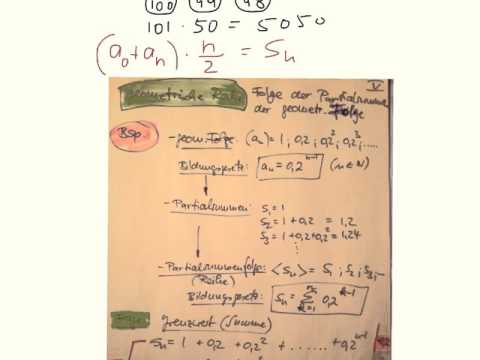 100 99 98
101 · 50 = 5050
(a₀ + aₙ) · n/2 = Sₙ
V
Geometrische Reihe Folge der Partialsummen
der geometr. Folge
Bsp
- geom. Folge (aₙ) = 1; 0,2; 0,2²; 0,2³; ....
Bildungsgesetz: aₙ = 0,2ⁿ⁻¹ (n∈N)
- Partialsummen: S₁ = 1
S₂ = 1 + 0,2 = 1,2
S₃ = 1 + 0,2 + 0,2² = 1,24
- Partialsummenfolge: <Sₙ> = S₁; S₂; S₃; ...
(Reihe)
Bildungsgesetz: Sₙ = Σ 0,2ᵏ⁻¹
k=1
Grenzwert (Summe)
Sₙ = 1 + 0,2 + 0,2² + ...... + 0,2ⁿ⁻¹